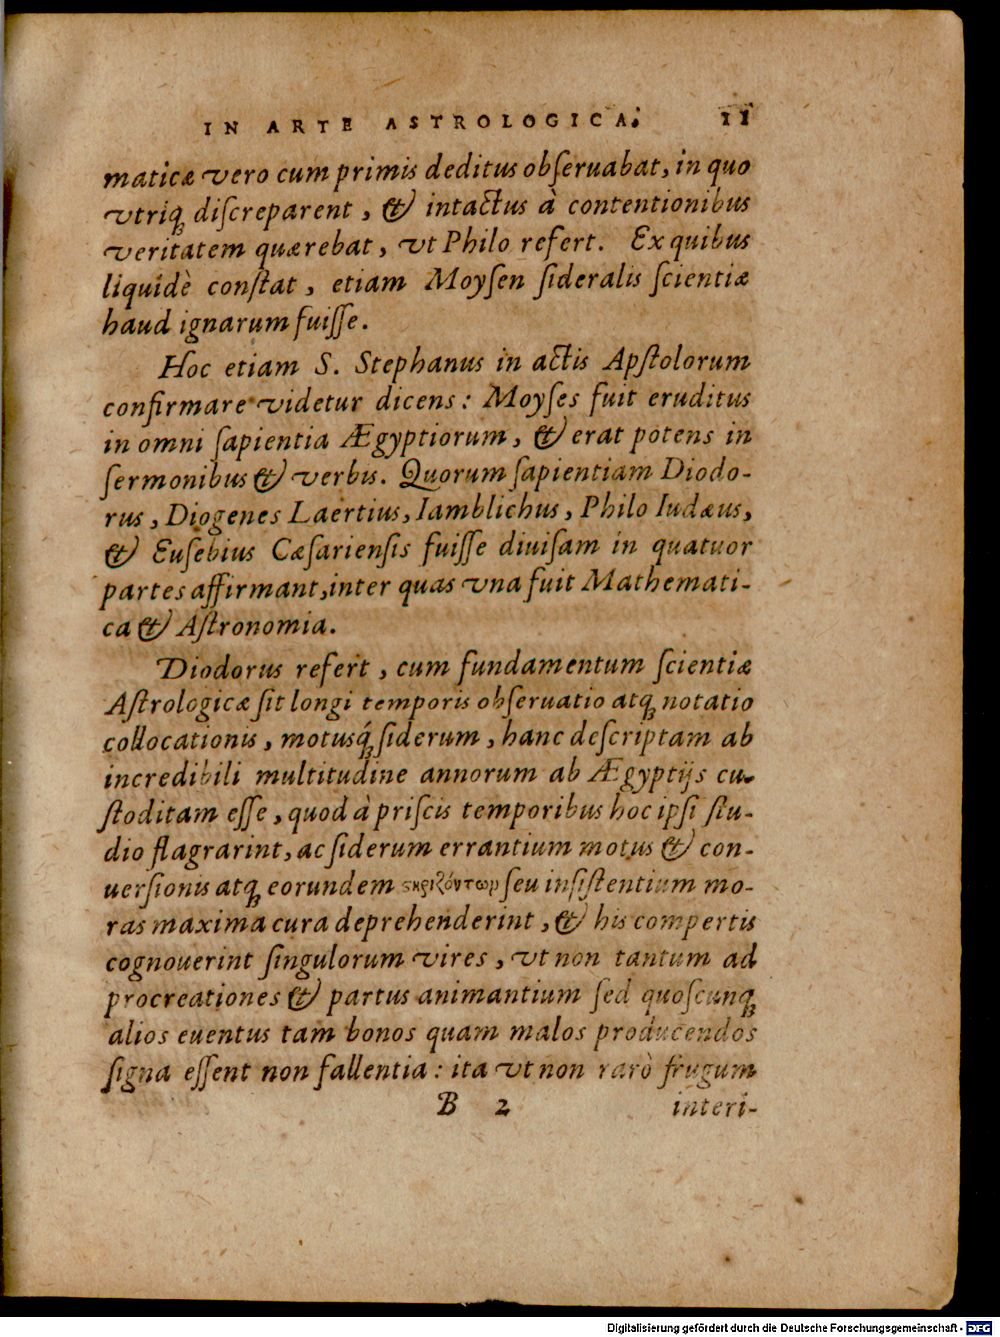 IN ARTE ASTROLOGICA. 11
maticæ vero cum primis deditus obſeruabat, in quo
vtriq́ꝫ diſcreparent, & intactus à contentionibus
veritatem quærebat, vt Philo refert. Ex quibus
liquidè conſtat, etiam Moyſen ſideralis ſcientiæ
haud ignarum fuiſſe.
Hoc etiam S. Stephanus in actis Apſtolorum
confirmare videtur dicens: Moyſes fuit eruditus
in omni ſapientia Ægyptiorum, & erat potens in
ſermonibus & verbis. Quorum ſapientiam Diodo-
rus, Diogenes Laertius, Iamblichus, Philo Iudæus,
& Euſebius Cæſarienſis fuiſſe diuiſam in quatuor
partes affirmant, inter quas vna fuit Mathemati-
ca & Aſtronomia.
Diodorus refert, cum fundamentum ſcientiæ
Aſtrologicæ ſit longi temporis obſeruatio atqꝫ notatio
collocationis, motusq́ꝫ ſiderum, hanc deſcriptam ab
incredibili multitudine annorum ab Ægyptijs cu-
ſtoditam eſſe, quod à priſcis temporibus hoc ipſi ſtu-
dio flagrarint, ac ſiderum errantium motus & con-
uerſionis atqꝫ eorundem ſeu inſiſtentium mo-
ras maxima cura deprehenderint, & his compertis
cognouerint ſingulorum vires, vt non tantum ad
procreationes & partus animantium ſed quoſcunqꝫ
alios euentus tam bonos quam malos producendos
ſigna eſſent non fallentia: ita vt non rarò frugum
B 2 interi-
Digitalisierung gefördert durch die Deutsche Forschungsgemeinschaft - DFG